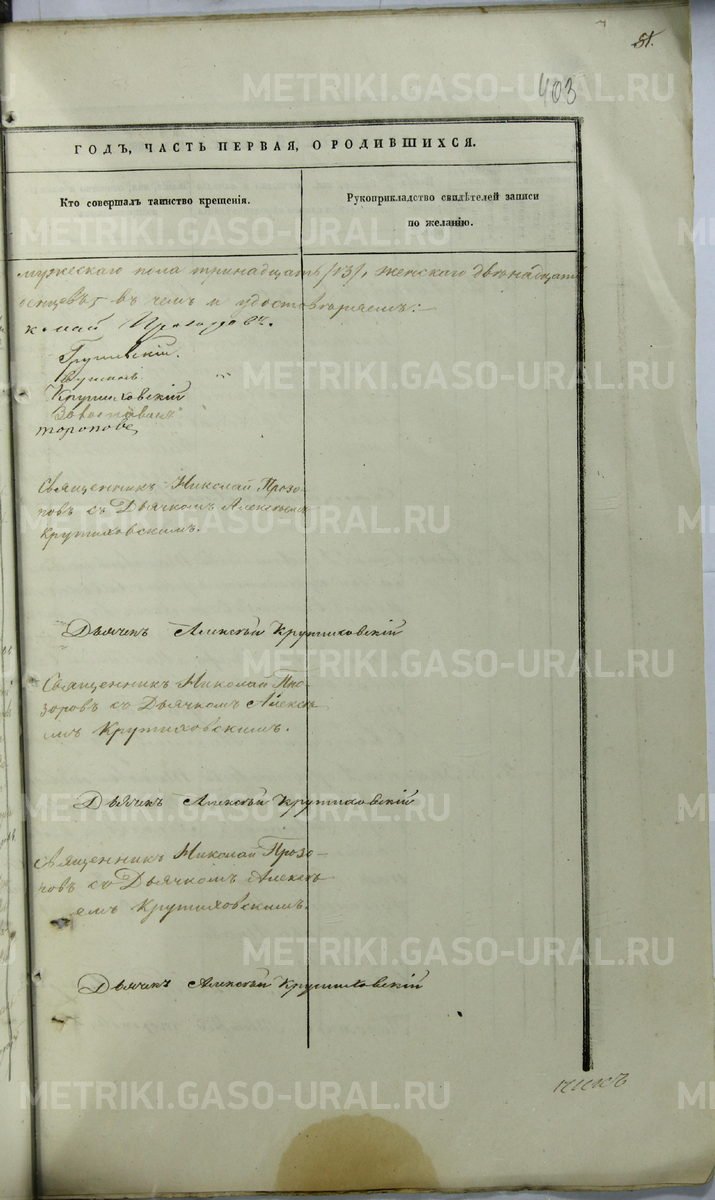 81.
403
ГОДЪ, ЧАСТЬ ПЕРВАЯ, О РОДИВШИХСЯ.
Кто совершалъ таинство крещенія.
Рукоприкладство свидѣтелей записи
по желанію.
мужескаго пола тринадцать /13/, женскаго двѣнадцать
въ чемъ и удостовѣряемъ:
Прозоровъ.
Грушевскій.
Крутиховскій
Священникъ Николай Прозо-
ровъ съ Дьячкомъ Алексѣемъ
Крутиховскимъ.
Дьячекъ Алексѣй Крутиховскій
Священникъ Николай Про-
зоровъ съ Дьячкомъ Алексѣ-
емъ Крутиховскимъ.
Дьячекъ Алексѣй Крутиховскій
Священникъ Николай Прозо-
ровъ со Дьячкомъ Алексѣ-
емъ Крутиховскимъ.
Дьячекъ Алексѣй Крутиховскій
METRIKI.GASO-URAL.RU
METRIKI.GASO-URAL.RU
METRIKI.GASO-URAL.RU
METRIKI.GASO-URAL.RU
METRIKI.GASO-URAL.RU
METRIKI.GASO-URAL.RU
METRIKI.GASO-URAL.RU
METRIKI.GASO-URAL.RU